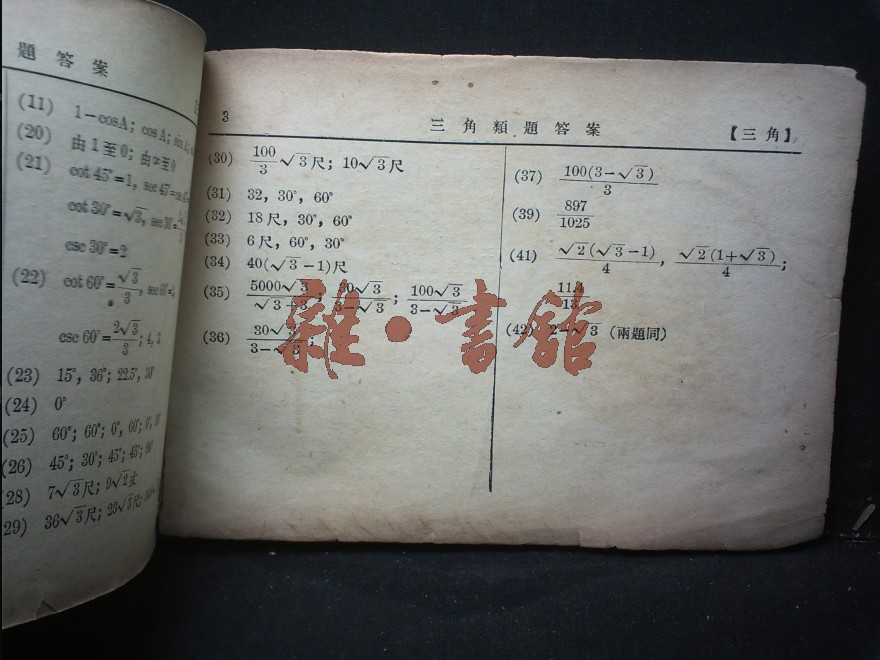 題 答 案
(11) 1－cosA; cosA; sin
(20) 由 1 至 0; 由 ∞ 至 0
(21) cot 45°=1, sec 45°=
cot 30°=√3, sec 30°=
csc 30°=2
(22) cot 60°=√3/3, sec 60°=
csc 60°=2√3/3; 4,
(23) 15°, 36°; 22.5°,
(24) 0°
(25) 60°; 60°; 0°, 60°; 0°,
(26) 45°; 30°; 45°; 45°;
(28) 7√3尺; 9√2丈
(29) 36√3尺; 23√3尺;
3 三角類題答案 【三角】
(30) 100/3 √3尺; 10√3尺
(31) 32, 30°, 60°
(32) 18尺, 30°, 60°
(33) 6尺, 60°, 30°
(34) 40(√3－1)尺
(35) 5000√3/√3+3; 0√3/3－√3; 100√3/3－√3
(36) 30√3/3－√3;
(37) 100(3－√3)/3
(39) 897/1025
(41) √2(√3－1)/4, √2(1+√3)/4;
(42) 2－√3 (兩題同)
雜·書館